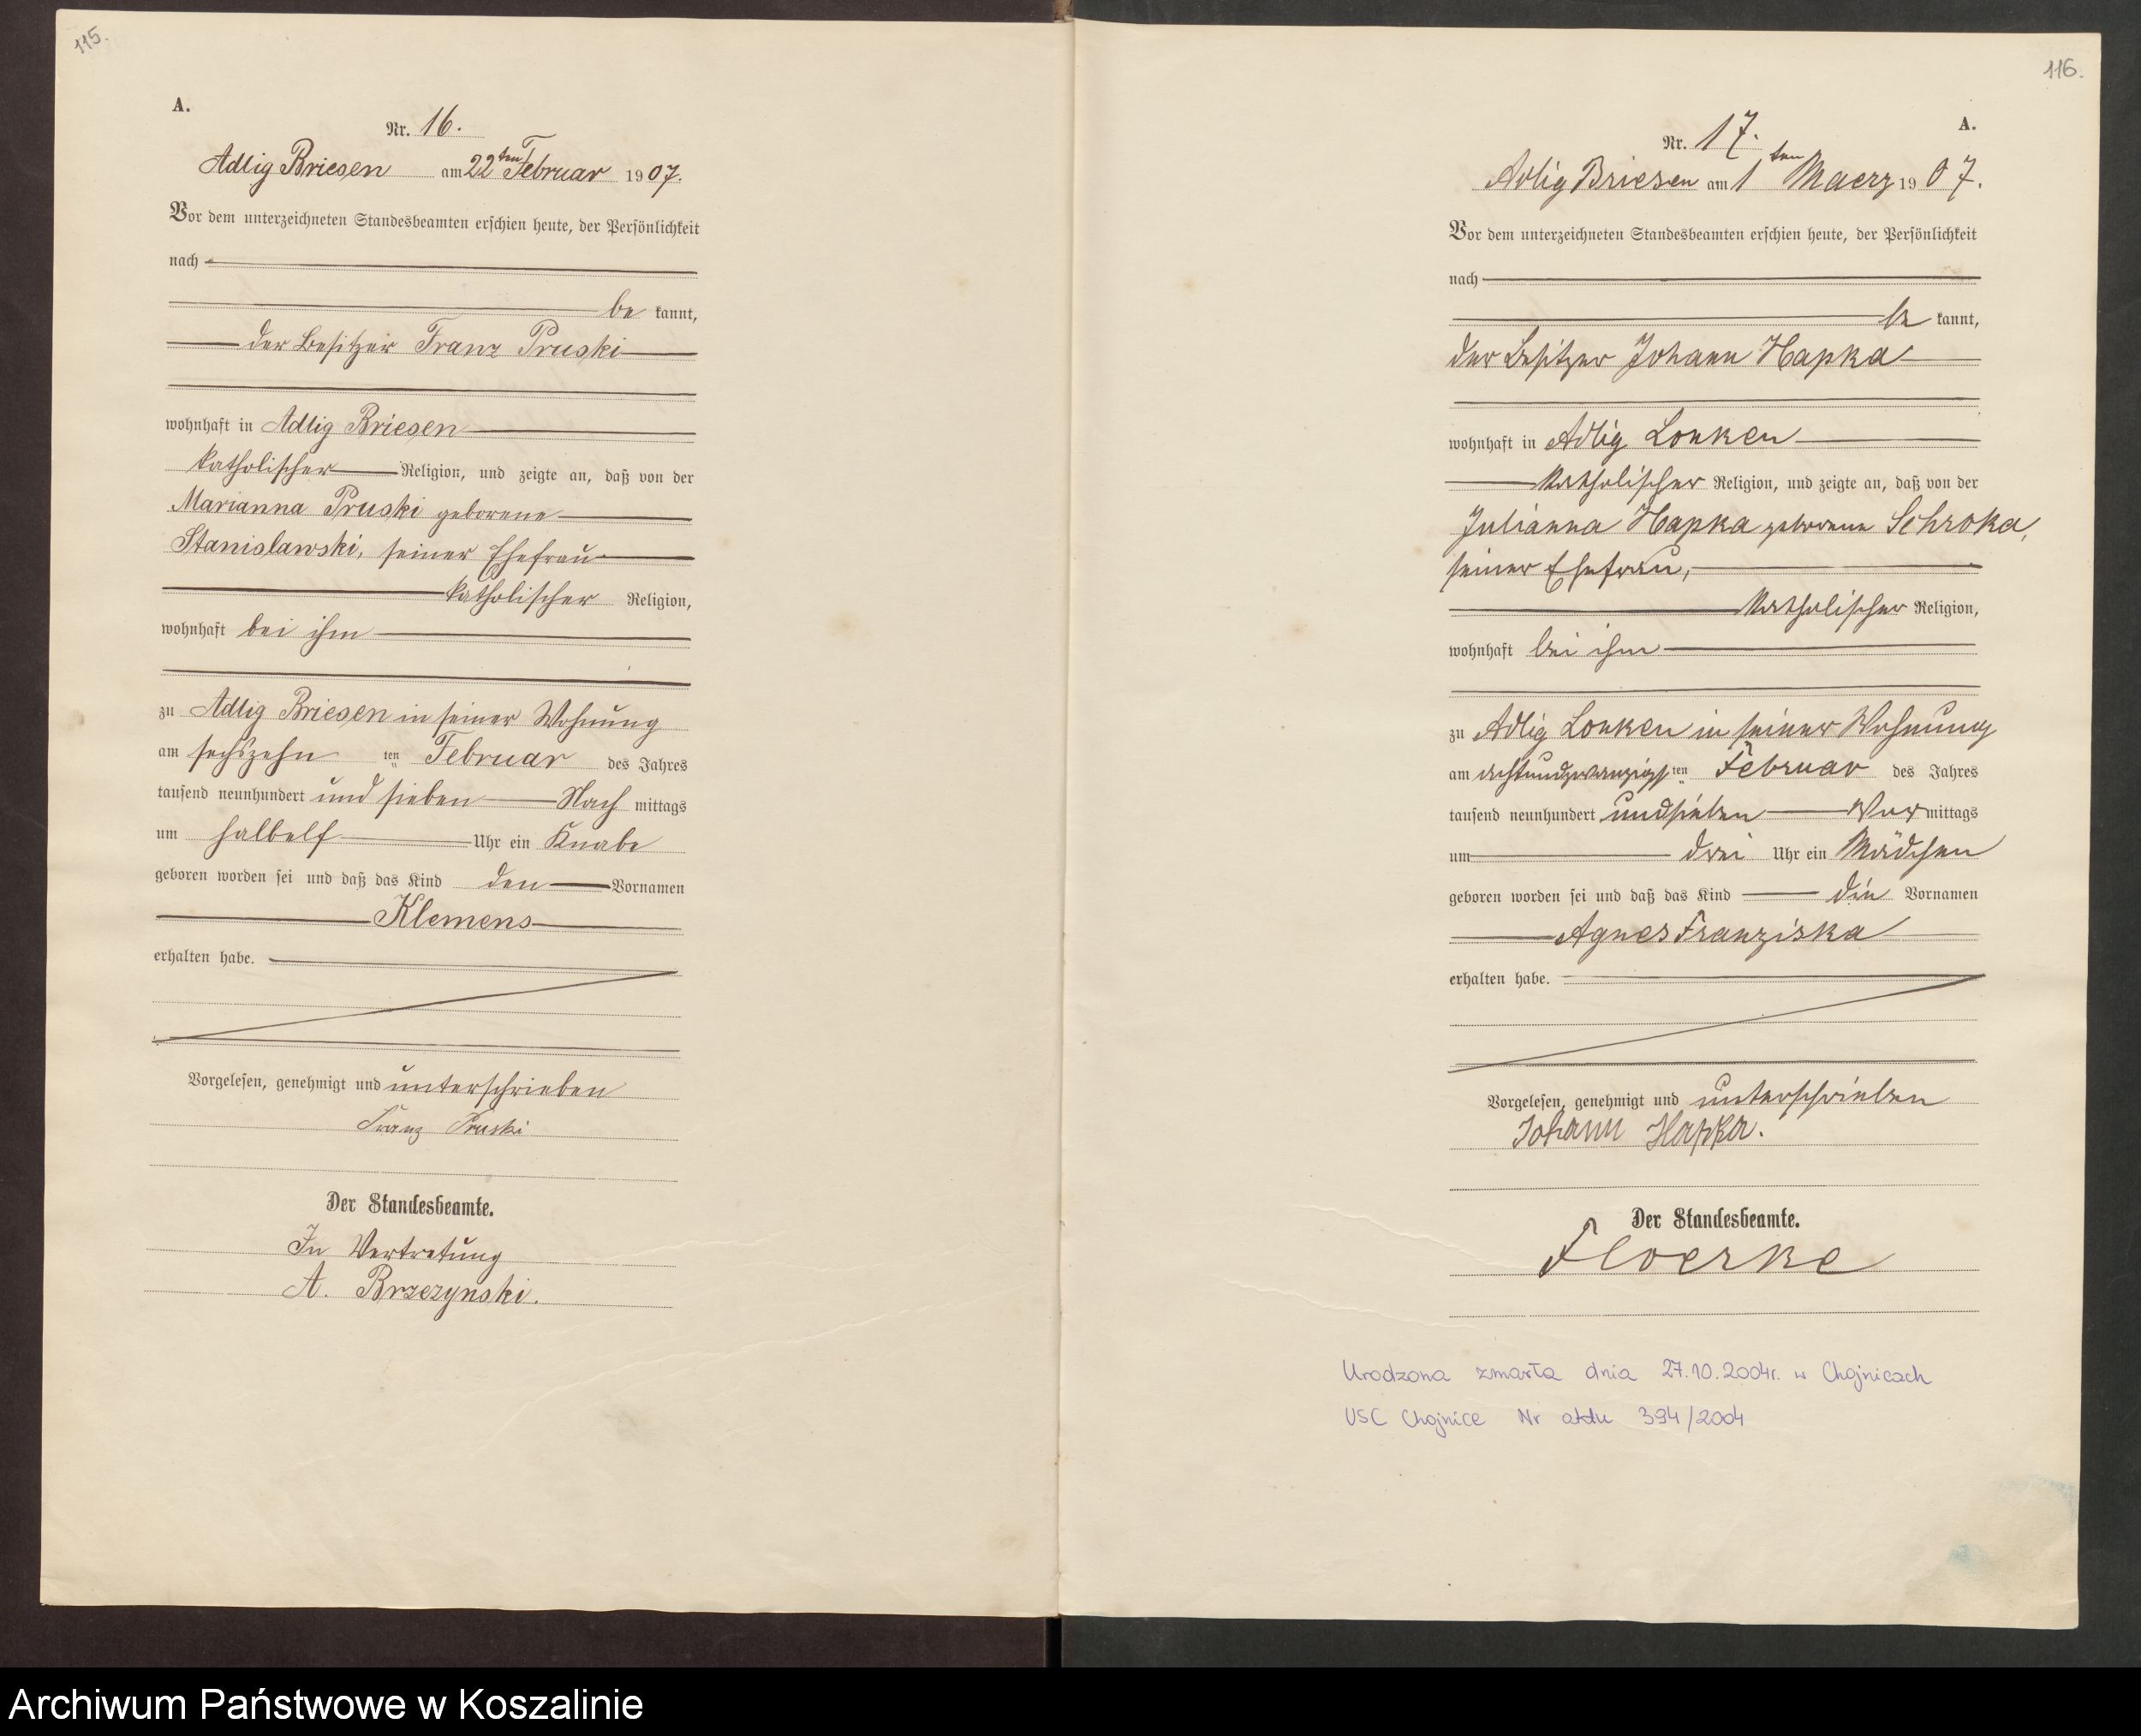 115.
A.
Nr. 16.
Adlig Briesen am 22ten Februar 1907.
Vor dem unterzeichneten Standesbeamten erschien heute, der Persönlichkeit
nach
be kannt,
der Besitzer Franz Pruski
wohnhaft in Adlig Briesen
katholischer Religion, und zeigte an, daß von der
Marianna Pruski geborene
Stanislawski, seiner Ehefrau
katholischer Religion,
wohnhaft bei ihm
zu Adlig Briesen in seiner Wohnung
am sechszehn ten Februar des Jahres
tausend neunhundert und sieben Nach mittags
um halbelf Uhr ein Knabe
geboren worden sei und daß das Kind den Vornamen
Klemens
erhalten habe.
Vorgelesen, genehmigt und unterschrieben
Franz Pruski
Der Standesbeamte.
In Vertretung
A. Brzezynski.
116.
A.
Nr. 17.
Adlig Briesen am 1ten Maerz 1907.
Vor dem unterzeichneten Standesbeamten erschien heute, der Persönlichkeit
nach
be kannt,
der Besitzer Johann Hapka
wohnhaft in Adlig Lonken
katholischer Religion, und zeigte an, daß von der
Julianna Hapka geborene Schroka,
seiner Ehefrau,
katholischer Religion,
wohnhaft bei ihm
zu Adlig Lonken in seiner Wohnung
am achtundzwanzigsten Februar des Jahres
tausend neunhundert undsieben Vor mittags
um drei Uhr ein Mädchen
geboren worden sei und daß das Kind die Vornamen
Agnes Franziska
erhalten habe.
Vorgelesen, genehmigt und unterschrieben
Johann Hapka.
Der Standesbeamte.
Floerke
Urodzona zmarła dnia 27.10.2004r. w Chojnicach
USC Chojnice Nr aktu 394/2004
Archiwum Państwowe w Koszalinie